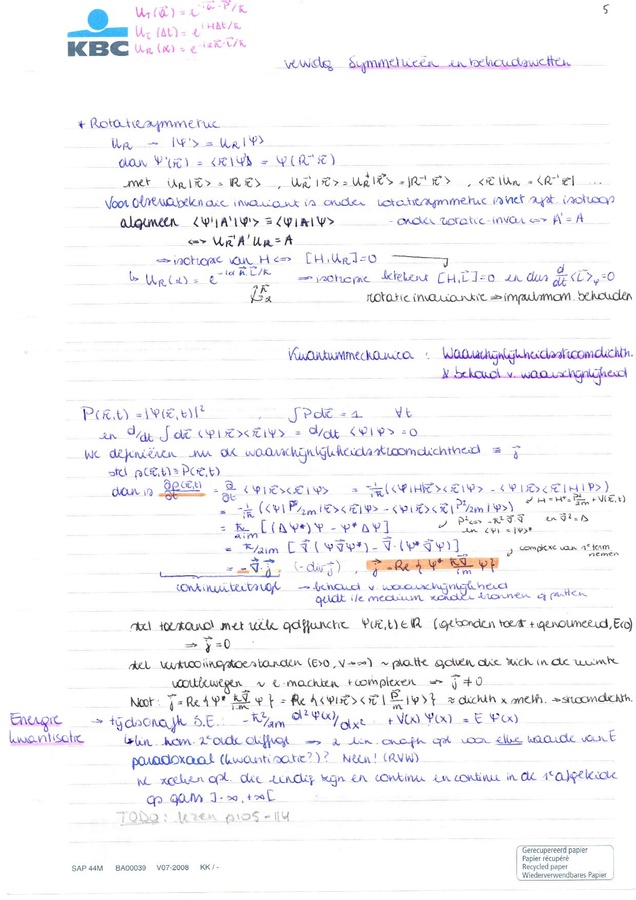 U_T(a⃗) = e^{-i a⃗·P⃗/ħ}
U_t(Δt) = e^{iHΔt/ħ}
U_R(α) = e^{-iα n⃗·L⃗/ħ}
5
KBC
vervolg Symmetrieën en behoudswetten
* Rotatiesymmetrie
U_R → |Ψ'> = U_R|Ψ>
dan Ψ'(r⃗) = <r⃗|Ψ'> = Ψ(R⁻¹r⃗)
met U_R|r⃗> = |R r⃗> , U_R⁻¹|r⃗> = U_R†|r⃗> = |R⁻¹r⃗> , <r⃗|U_R = <R⁻¹r⃗| ...
Voor observabelen die invariant is onder rotatiesymmetrie is het syst. isotroop
algemeen <Ψ'|A'|Ψ'> = <Ψ|A|Ψ> - onder rotatie-invar <=> A' = A
<=> U_R⁻¹A'U_R = A
→ isotropie van H <=> [H,U_R] = 0
↳ U_R(α) = e^{-iα n⃗·L⃗/ħ} ⇒ isotropie betekent [H,L⃗] = 0 en dus d/dt <L⃗>_Ψ = 0
rotatie invariantie ⇒ impulsmom. behouden
Kwantummechanica : Waarschijnlijkheidsstroomdichth.
& behoud v. waarschijnlijkheid
P(r⃗,t) = |Ψ(r⃗,t)|² , ∫P dr⃗ = 1 ∀t
en d/dt ∫dr⃗ <Ψ|r⃗><r⃗|Ψ> = d/dt <Ψ|Ψ> = 0
We definiëren nu de waarschijnlijkheidsstroomdichtheid ≡ j⃗
stel ρ(r⃗,t) ≡ P(r⃗,t)
dan is ∂ρ(r⃗,t)/∂t = ∂/∂t <Ψ|r⃗><r⃗|Ψ> = -1/iħ (<Ψ|H|r⃗><r⃗|Ψ> - <Ψ|r⃗><r⃗|H|Ψ>)
↙ H = H* = P²/2m + V(r⃗)
= -1/iħ (<Ψ|P²/2m|r⃗><r⃗|Ψ> - <Ψ|r⃗><r⃗|P²/2m|Ψ>)
↙ P² <=> -ħ² ∇⃗·∇⃗ en ∇⃗² = Δ
= ħ/2im [(ΔΨ*)Ψ - Ψ*ΔΨ] en <Ψ| = |Ψ>*
= ħ/2im [∇⃗(Ψ∇⃗Ψ*) - ∇⃗·(Ψ*∇⃗Ψ)] complexe van 1e term nemen
= -∇⃗·j⃗ (-div j⃗) , j⃗ = Re{Ψ* ħ∇⃗/im Ψ}
continuïteitsvgl → behoud v waarschijnlijkheid
geldt i/e medium zonder bronnen of putten
stel toestand met reële golffunctie Ψ(r⃗,t) ∈ ℝ (gebonden toest + genormeerd, E<0)
⇒ j⃗ = 0
stel verstrooiingstoestanden (E>0, V→∞) ~ platte golven die zich in de ruimte
voortbewegen ~ e-machten + complexen ⇒ j⃗ ≠ 0
Noot: j⃗ = Re{Ψ* ħ∇⃗/im Ψ} = Re{<Ψ|r⃗><r⃗|p⃗/m|Ψ>} ≈ dichth × snelh. → stroomdichth.
Energie kwantisatie
→ tijdsonafh S.E.: -ħ²/2m d²Ψ(x)/dx² + V(x)Ψ(x) = E Ψ(x)
↳ lin. hom. 2e orde diffvgl ⇒ 2 lin. onafh opl voor elke waarde van E
paradoxaal (kwantisatie?)? Neen! (RVW)
we zoeken opl. die eindig zijn en continu en continu in de 1e afgeleide
op gans ]-∞,+∞[
TODO: lezen p105-114
SAP 44M BA00039 V07-2008 KK / -
Gerecupereerd papier
Papier récupéré
Recycled paper
Wiederverwendbares Papier